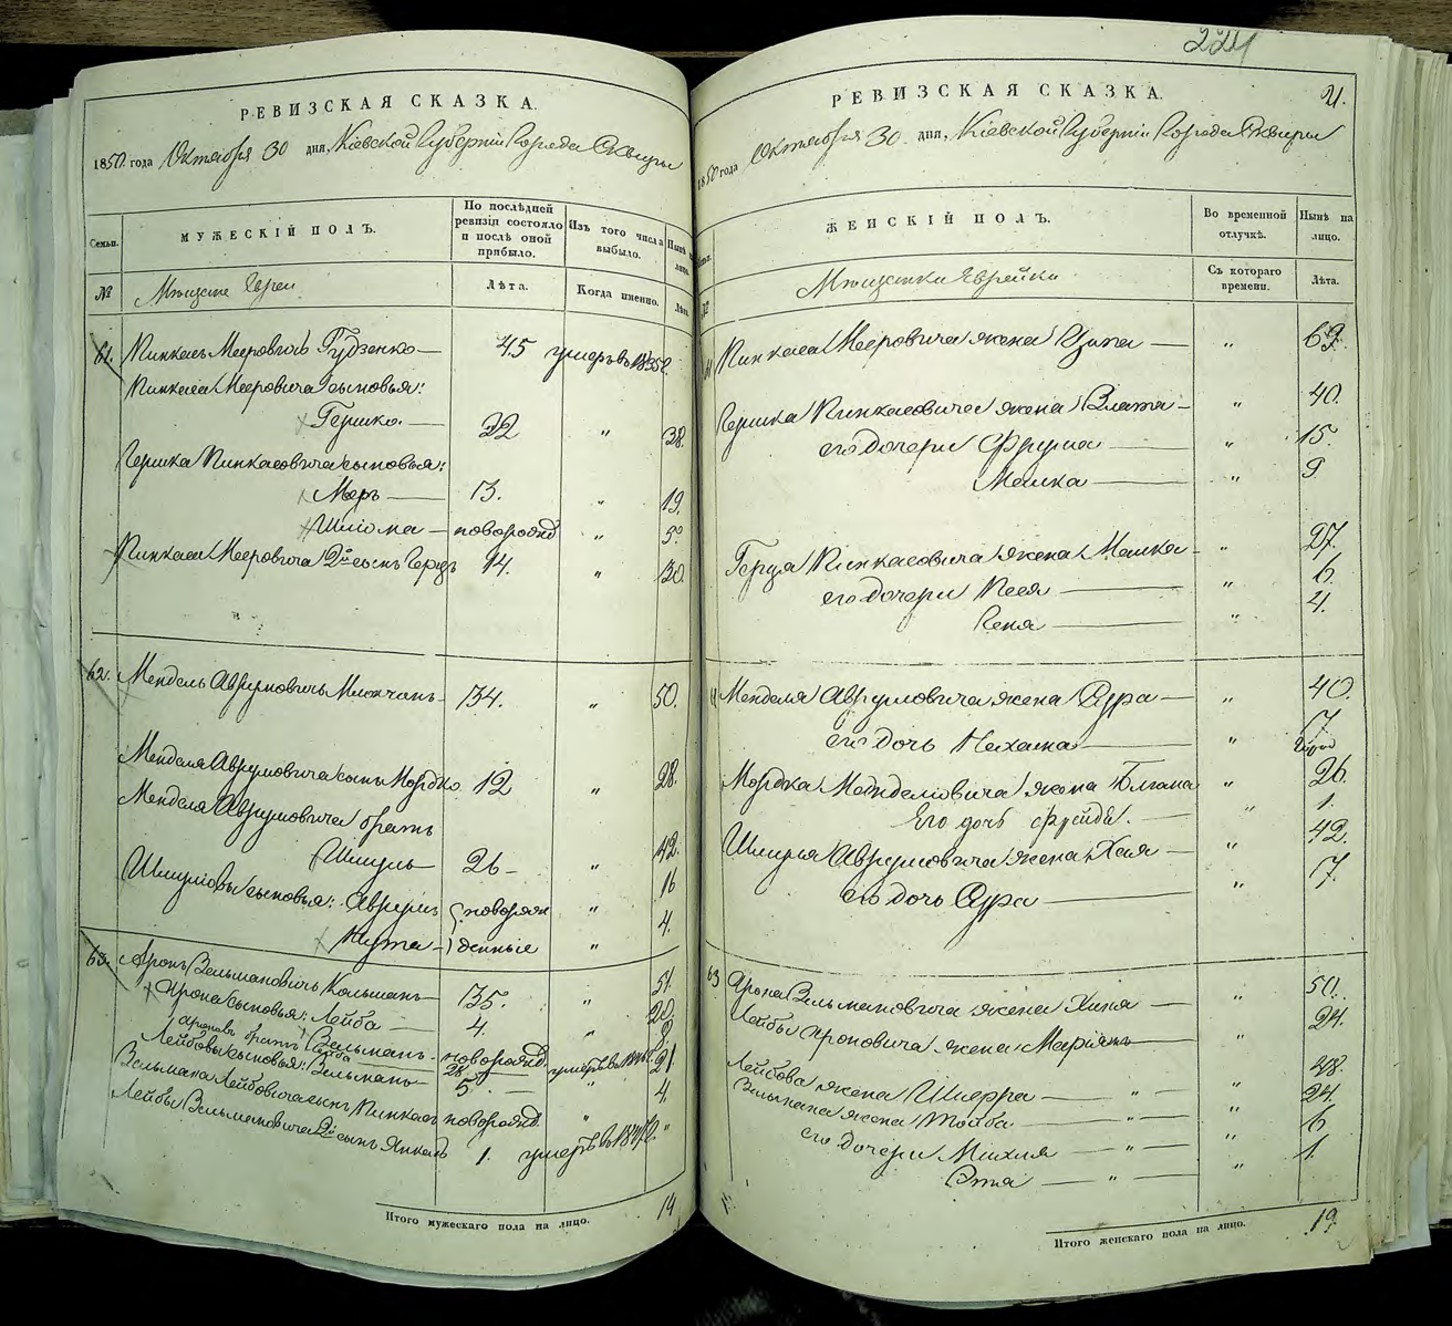 РЕВИЗСКАЯ СКАЗКА.
1850. года Октября 30 дня, Кіевской Губерніи Города Сквиры
Семьи.
МУЖЕСКІЙ ПОЛЪ.
По послѣдней ревизіи состояло и послѣ оной прибыло.
Изъ того числа выбыло.
Нынѣ на лицо.
№
Мѣщане Евреи
Лѣта.
Когда именно.
Лѣта.
61. Пинкасъ Мееровичъ Гудзенко — 45 умеръ въ 1835 г.
Пинкаса Мееровича сыновья:
Гершко. — 22 " 38.
Гершка Пинкасовича сыновья:
Меръ — 13. " 19.
Шліома — новорожд " 5.
Пинкаса Мееровича 2й сынъ Герцъ 14. " 30.
62. Мендель Аврумовичъ 34. " 50.
Менделя Аврумовича сынъ Мордко. 12 " 28.
Менделя Аврумовича братъ
Шмуль — 26 — " 42.
Шмулiовы сыновья: Аврумъ новорож " 16
Нута — денные " 4.
63. Аронъ Зельмановичъ Кольманъ — 35. " 51.
Арона сыновья: Лейба — 4. " 20.
Зельманъ — новорожд.
Ароновъ братъ Лейба 28 умеръ въ
Лейбовы сыновья: Зельманъ — 5 — " 21
Зельмана Лейбовича сынъ Пинкасъ новорожд. " 4.
Лейбы Зельмановича 2й сынъ Янкель 1. умеръ въ "
Итого мужескаго пола на лицо. 14
224
РЕВИЗСКАЯ СКАЗКА. 21.
1850 года Октября 30 дня, Кіевской Губерніи Города Сквиры
ЖЕНСКІЙ ПОЛЪ.
Во временной отлучкѣ.
Нынѣ на лицо.
№
Мѣщанки Еврейки
Съ котораго времени.
Лѣта.
Пинкаса Мееровича жена Ципа — " 69.
Гершка Пинкасовича жена Злата — " 40.
его дочери Фрума — " 15.
Малка — " 9
Герца Пинкасовича жена Малка — " 27.
его дочери Песя — " 6.
Кеня — " 4.
Менделя Аврумовича жена Сура — " 40.
его дочь Нахама — " 7
Мордка Менделіовича жена Блюма " 26.
Его дочь Фрейда. — " 1.
Шмуля Аврумовича жена Хая — " 42.
его дочь Сура — " 7.
63 Арона Зельмановича жена Хиня — " 50.
Лейбы Ароновича жена Маріямъ " 24.
Лейбова жена Шифра — " — " 48.
Зельмана жена Тойба — " — " 24.
его дочери Михля — " — " 6
Этя — " — " 1.
Итого женскаго пола на лицо. 19.